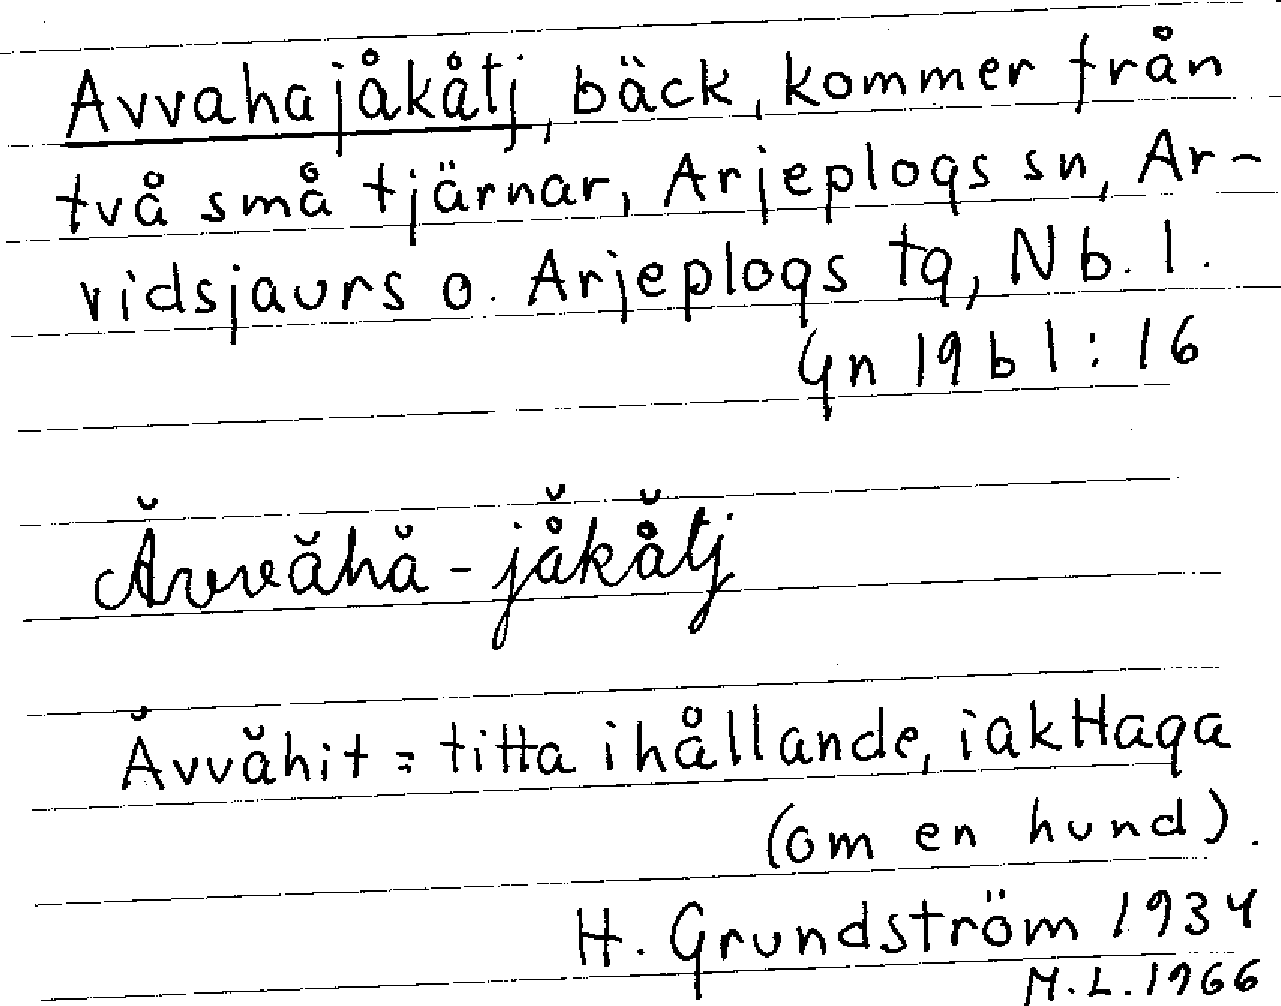 Avvahajåkåtj, bäck, kommer från
två små tjärnar, Arjeplogs sn, Ar-
vidsjaurs o. Arjeplogs tg, Nb. l.
Gn 19 b 1 : 16
Ăvvăhă - jå̆kå̆tj
Ăvvăhit = titta ihållande, iakttaga
(om en hund).
H. Grundström 1934
M. L. 1966